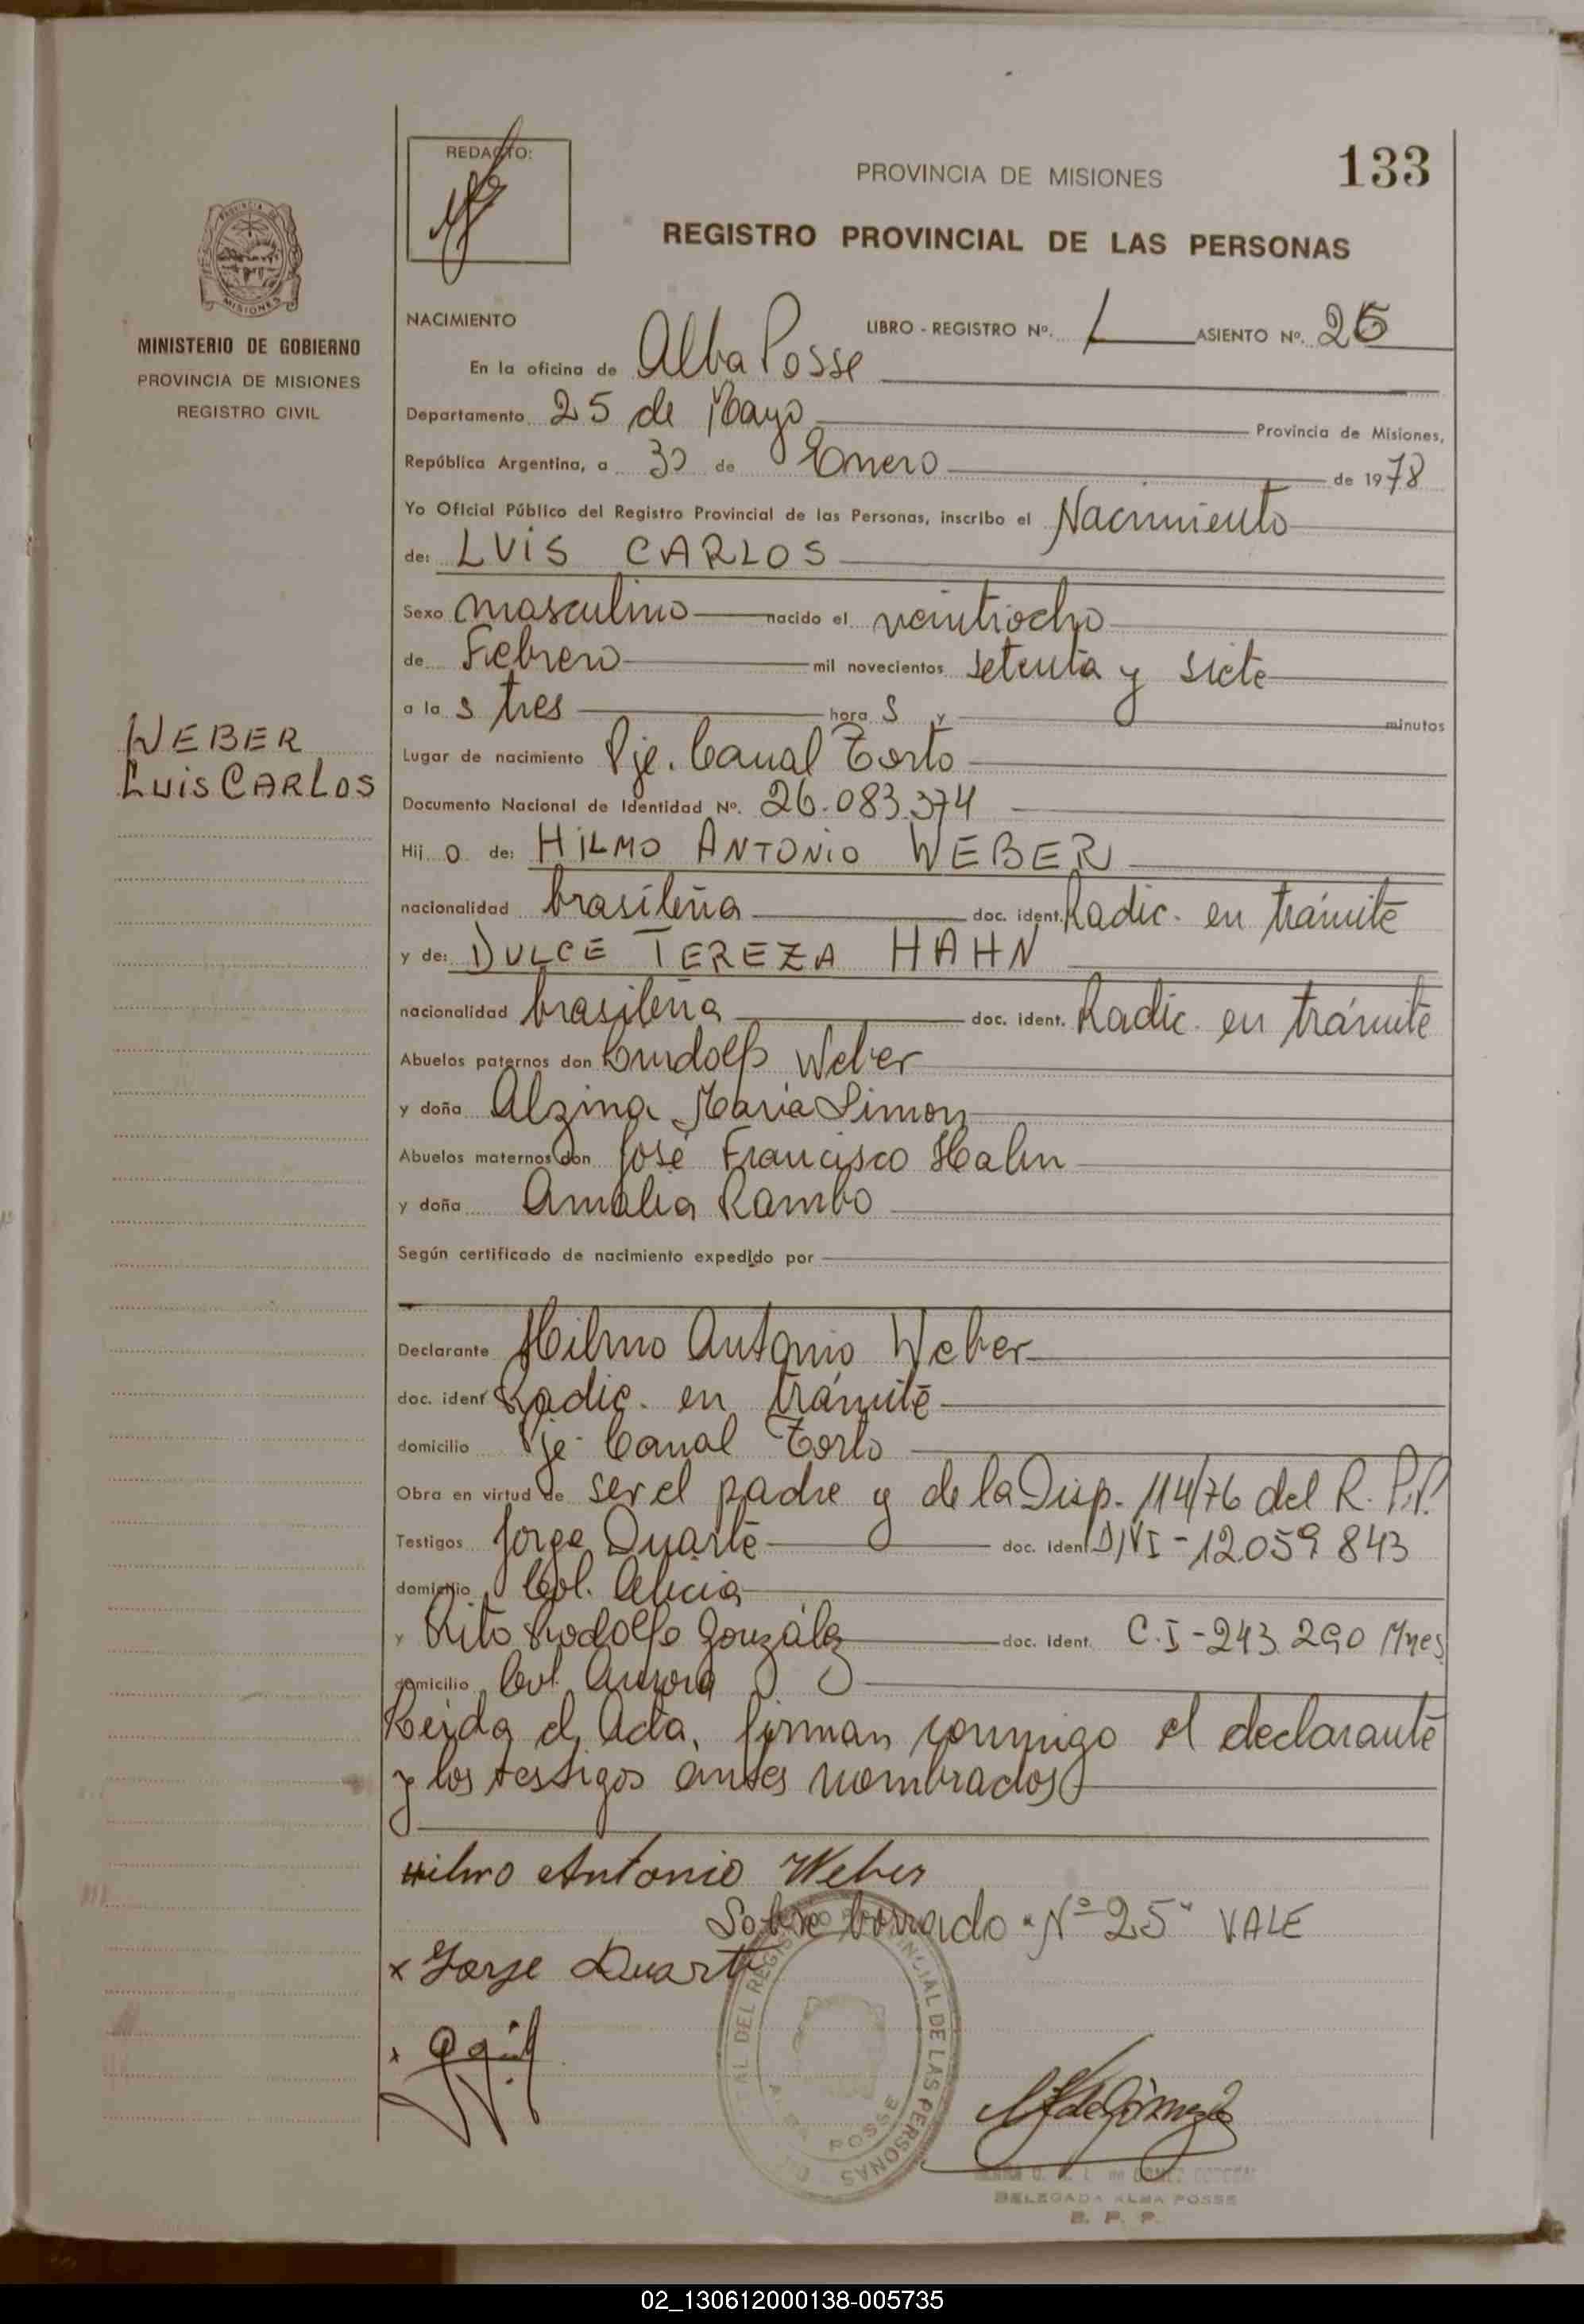 REDACTO:
PROVINCIA DE MISIONES
133
REGISTRO PROVINCIAL DE LAS PERSONAS
PROVINCIA DE MISIONES
MINISTERIO DE GOBIERNO
PROVINCIA DE MISIONES
REGISTRO CIVIL
NACIMIENTO LIBRO - REGISTRO Nº. I ASIENTO Nº. 25
En la oficina de Alba Posse
Departamento 25 de Mayo Provincia de Misiones,
República Argentina, a 30 de Enero de 1978
Yo Oficial Público del Registro Provincial de las Personas, inscribo el Nacimiento
de: LUIS CARLOS
Sexo masculino nacido el veintiocho
de Febrero mil novecientos setenta y siete
a la s tres hora s y minutos
WEBER
LUIS CARLOS
Lugar de nacimiento Pje. Canal Torto
Documento Nacional de Identidad Nº. 26.083.374
Hij o de: HILMO ANTONIO WEBER
nacionalidad brasileña doc. ident. Radic. en trámite
y de: DULCE TEREZA HAHN
nacionalidad brasileña doc. ident. Radic. en trámite
Abuelos paternos don Weber
y doña Alzina María Simon
Abuelos maternos don José Francisco Hahn
y doña Amalia Rambo
Según certificado de nacimiento expedido por
Declarante Hilmo Antonio Weber
doc. ident Radic. en trámite
domicilio Pje. Canal Torto
Obra en virtud de ser el padre y de la Disp. 114/76 del R. P.P.
Testigos Jorge Duarte doc. iden DNI-12.059.843
domicilio Col. Alicia
y Rito Rodolfo González doc. ident. C.I-243.290 Mnes
domicilio Col. Aurora
Leída el Acta, firman conmigo el declarante
y los testigos antes nombrados
Hilmo Antonio Weber
Sobre borrado "Nº 25" VALE
x Jorge Duarte
x
DEL REGISTRO PROVINCIAL DE LAS PERSONAS
ALBA POSSE
DELEGADA ALBA POSSE
R. P. P.
02_130612000138-005735